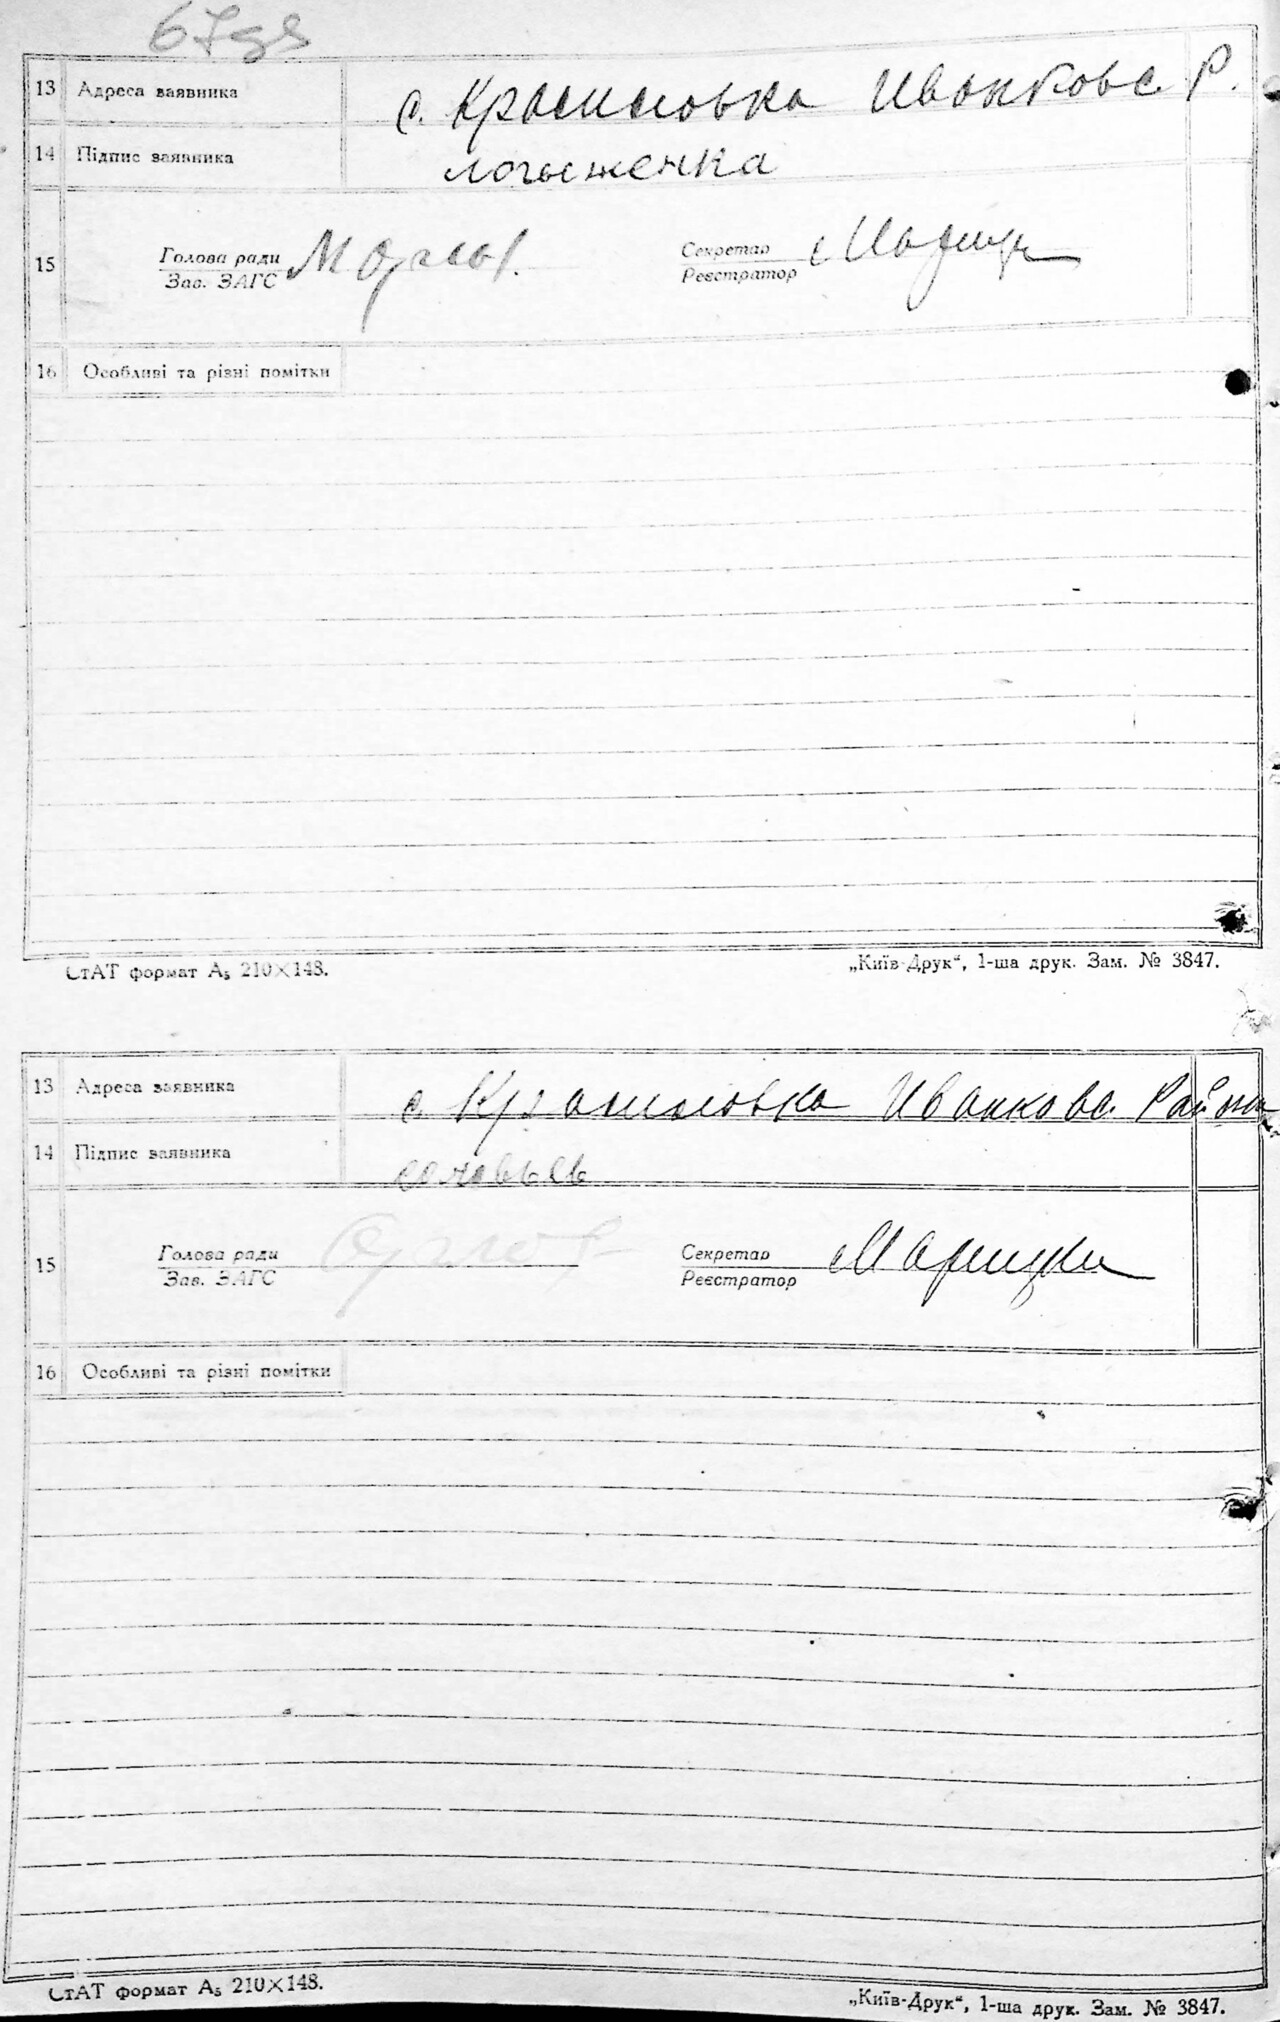 67
13 Адреса заявника с. Красиловка Иванковс. Р.
14 Підпис заявника
15 Голова ради Секретар
Зав. ЗАГС Реєстратор
16 Особливі та різні помітки
СтАТ формат А₅ 210×148. „Київ-Друк“, 1-ша друк. Зам. № 3847.
13 Адреса заявника с. Красиловка Иванковс. Района
14 Підпис заявника
15 Голова ради Секретар
Зав. ЗАГС Реєстратор
16 Особливі та різні помітки
СтАТ формат А₅ 210×148. „Київ-Друк“, 1-ша друк. Зам. № 3847.